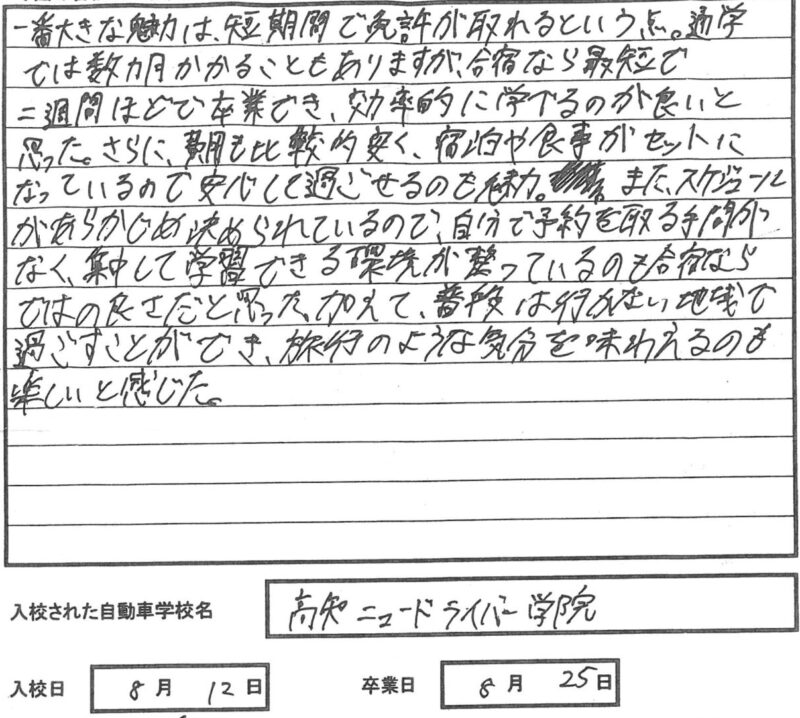 一番大きな魅力は、短期間で免許が取れるという点。通学
では数カ月かかることもありますが、合宿なら最短で
二週間ほどで卒業でき、効率的に学べるのが良いと
思った。さらに、費用も比較的安く、宿泊や食事がセットに
なっているので安心して過ごせるのも魅力。また、スケジュール
があらかじめ決められているので、自分で予約を取る手間が
なく、集中して学習できる環境が整っているのも合宿なら
ではの良さだと思った。加えて、普段は行かない地域で
過ごすことができ、旅行のような気分を味わえるのも
楽しいと感じた。
入校された自動車学校名 高知ニュードライバー学院
入校日 8月12日 卒業日 8月25日